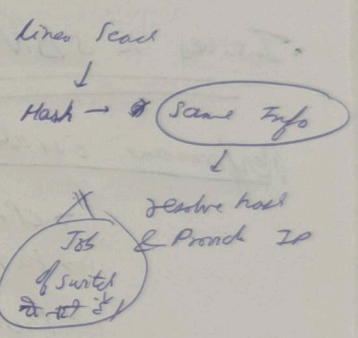 Linear Search
Hash → Same Info
resolve host
& Provide IP
Job
of switch